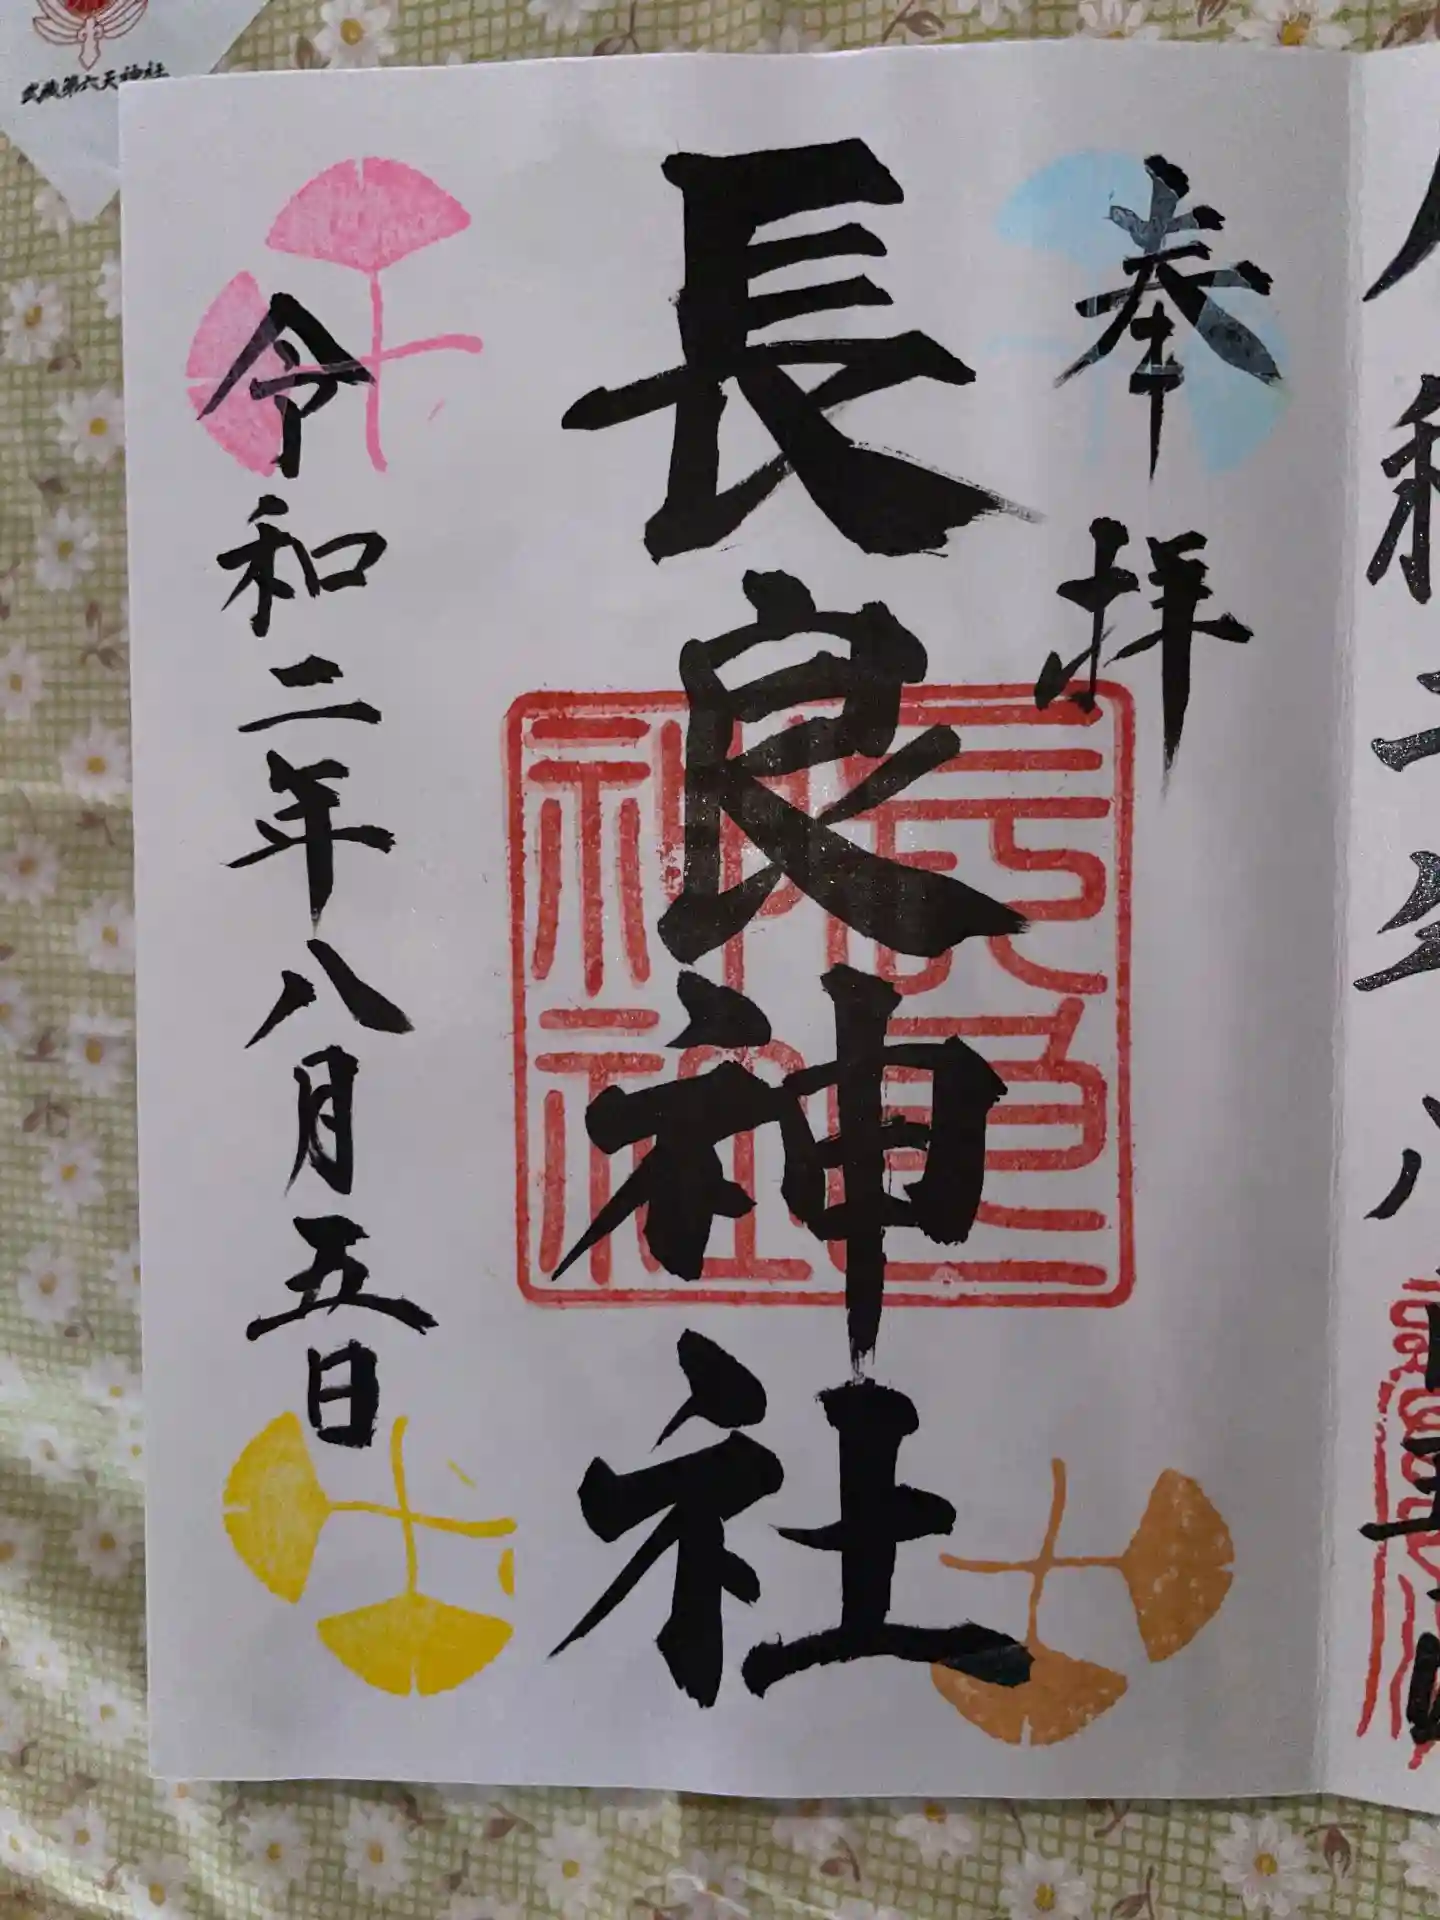 奉拝
長良神社
長良神社
令和二年八月五日
武蔵第六天神社